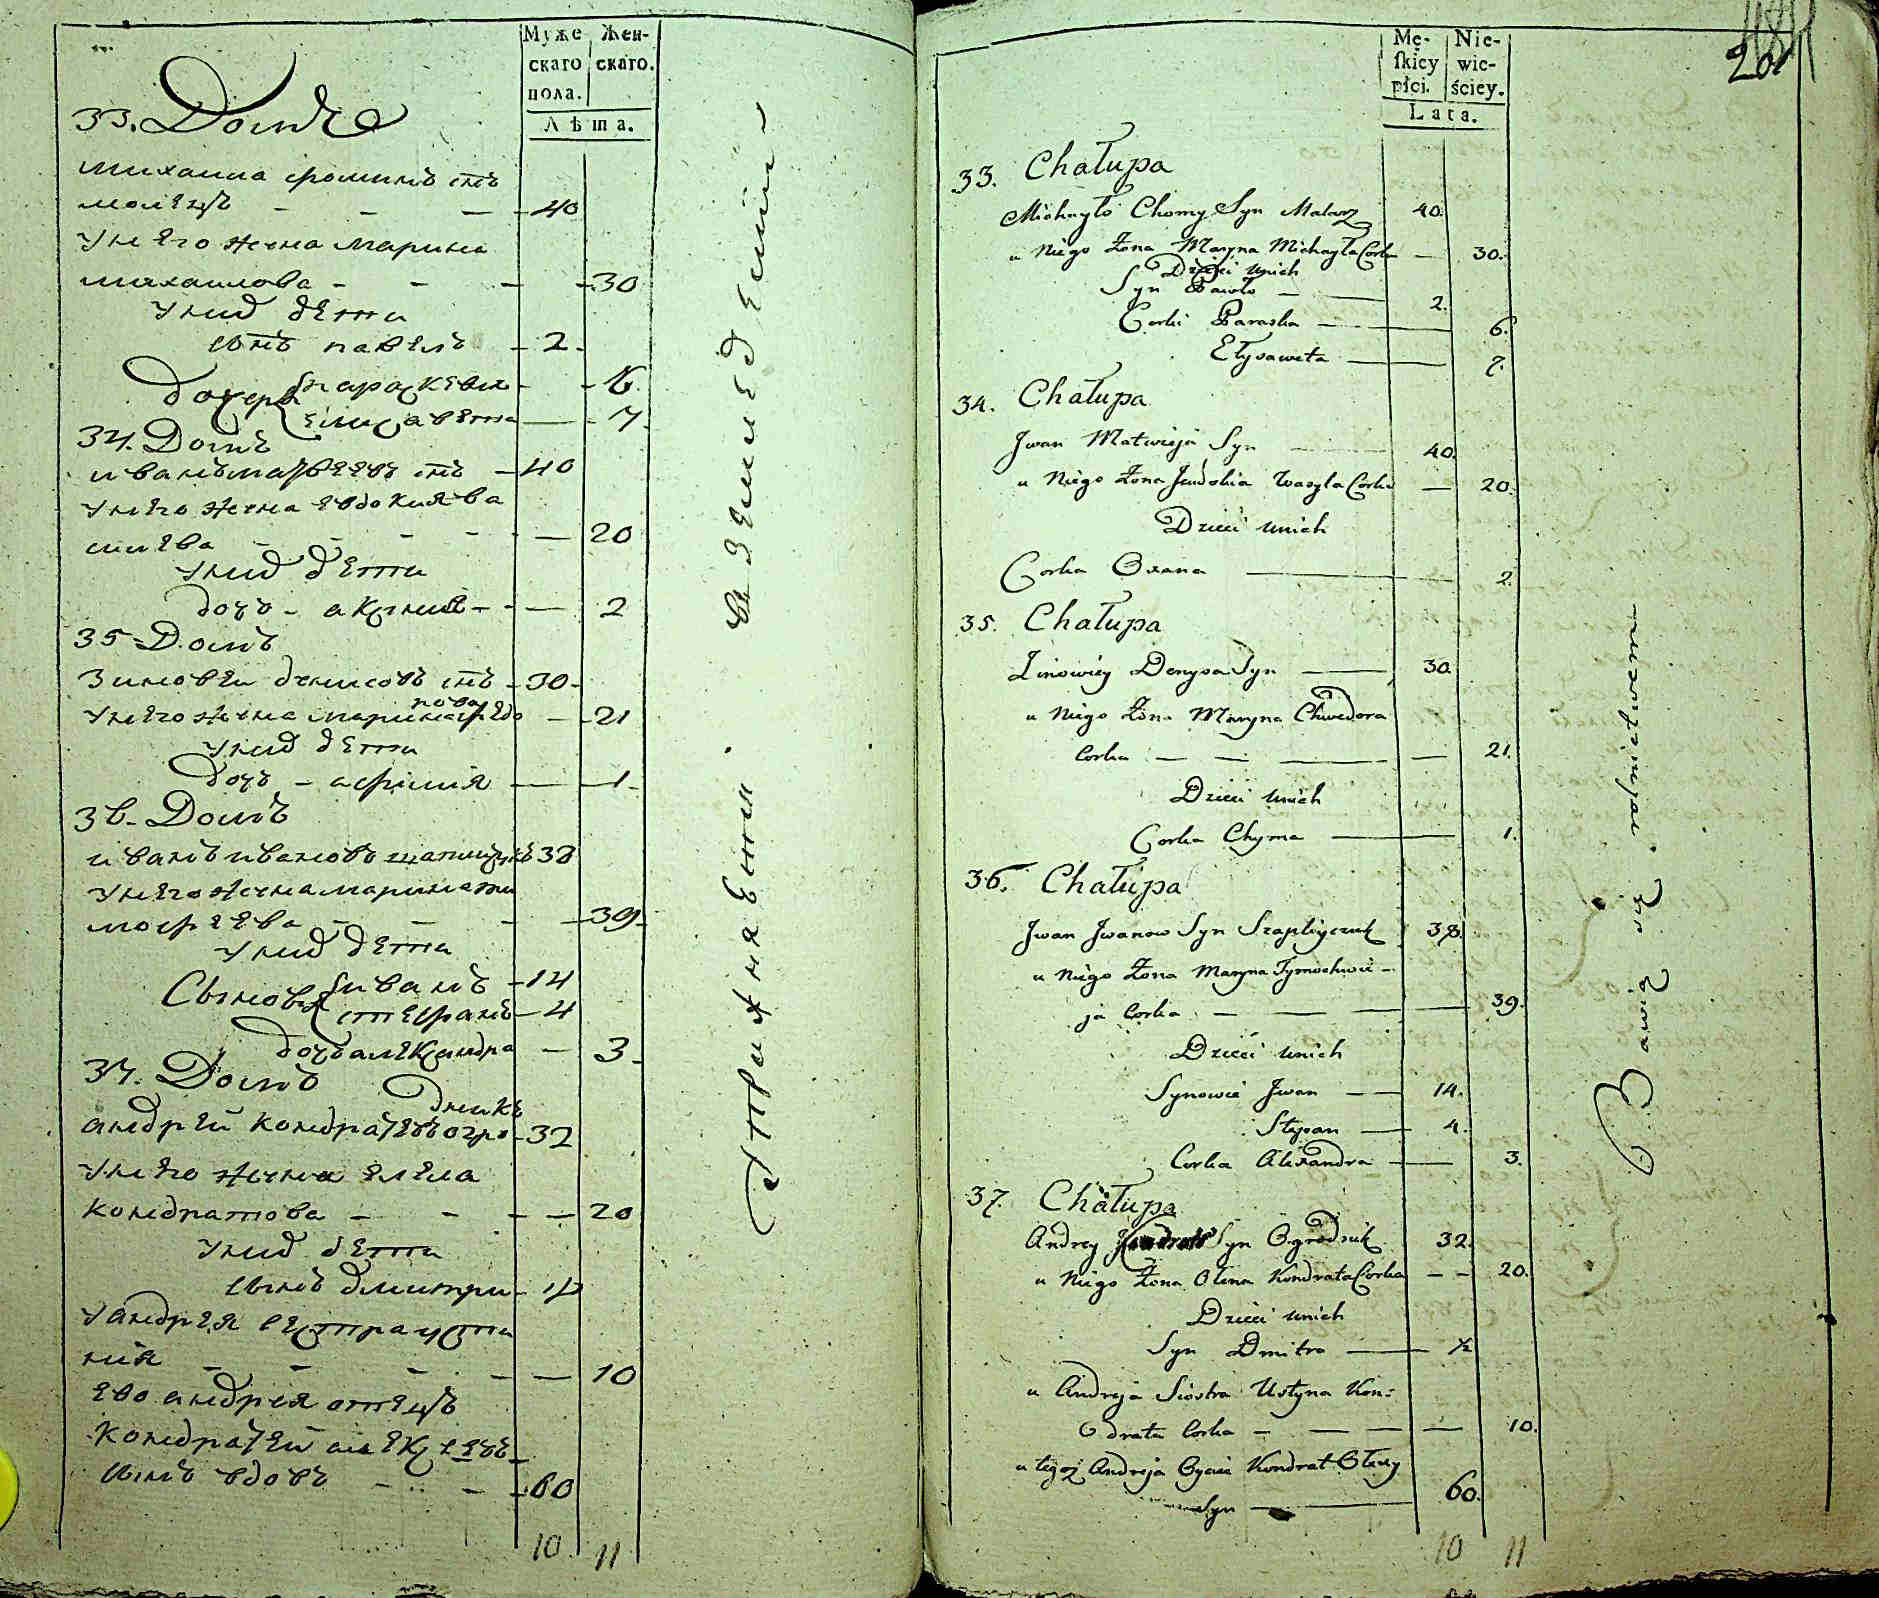 Муже
скаго
пола.
Жен-
скаго.
Лѣта.
33. Домъ
михаила фоминъ снъ
молецъ - - - 40
унего жена марина
михаилова - - - 30
унихъ дети
снъ павелъ - 2
дочери параскевия - 6
елисавета - 7
34. Домъ
иванъ матвеевъ снъ - 40
унего жена евдокия ва
силева - - - 20
унихъ дети
дочь - аксиния - 2
35 Домъ
Зиновеи денисовъ снъ - 30
унего жена марина федо
рова - 21
унихъ дети
дочь - афимия - 1
36. Домъ
иванъ ивановъ шапличукъ 38
унего жена марина ти
мофеева - - - 39
унихъ дети
Сыновя иванъ - 14
стефанъ - 4
дочь александра - 3
37. Домъ
андрей кондратевъ огро
дникъ - 32
унего жена елена
кондратова - - - 20
унихъ дети
сынъ дмитри - 1/2
у андрея сестра усти
ния - - - 10
ево андрея отецъ
кондратей алексеевъ
сынъ вдовъ - - 60
10 11
Упражняется въ земледелии
Mę-
skiey
płci.
Nie-
wie-
ściey.
Lata.
201
33. Chałupa
Michayło Chomy Syn Malarz 40.
u Niego Żona Maryna Michayła Corka — 30.
Dzieci unich
Syn Pawło — 2.
Corki Paraska — 6.
Ełysaweta — 7.
34. Chałupa
Jwan Matwieja Syn 40.
u Niego Żona Jeudokia Wasyla Corka — 20.
Dzieci unich
Corka Oxana — 2.
35. Chałupa
Zinowiey Denysa Syn — 30.
u Niego Żona Maryna Chwedora
Corka — — — 21.
Dzieci unich
Corka Chyma — 1.
36. Chałupa
Jwan Jwanow Syn Szapliyczuk 38.
u Niego Żona Maryna Tymochwie-
ja Corka — — — 39.
Dzieci unich
Synowie Jwan — 14.
Stepan — 4.
Corka Alexandra — 3.
37. Chałupa
Andrey Kondrata Syn Ogrodnik 32.
u Niego Żona Ołena Kondrata Corka — — 20.
Dzieci unich
Syn Dmitro — 1/2
u Andreja Siostra Ustyna Kon-
drata Corka — — — 10.
u tegoż Andreja Oyciec Kondrat Olexy
Syn — 60.
10 11
Bawią się rolnictwem